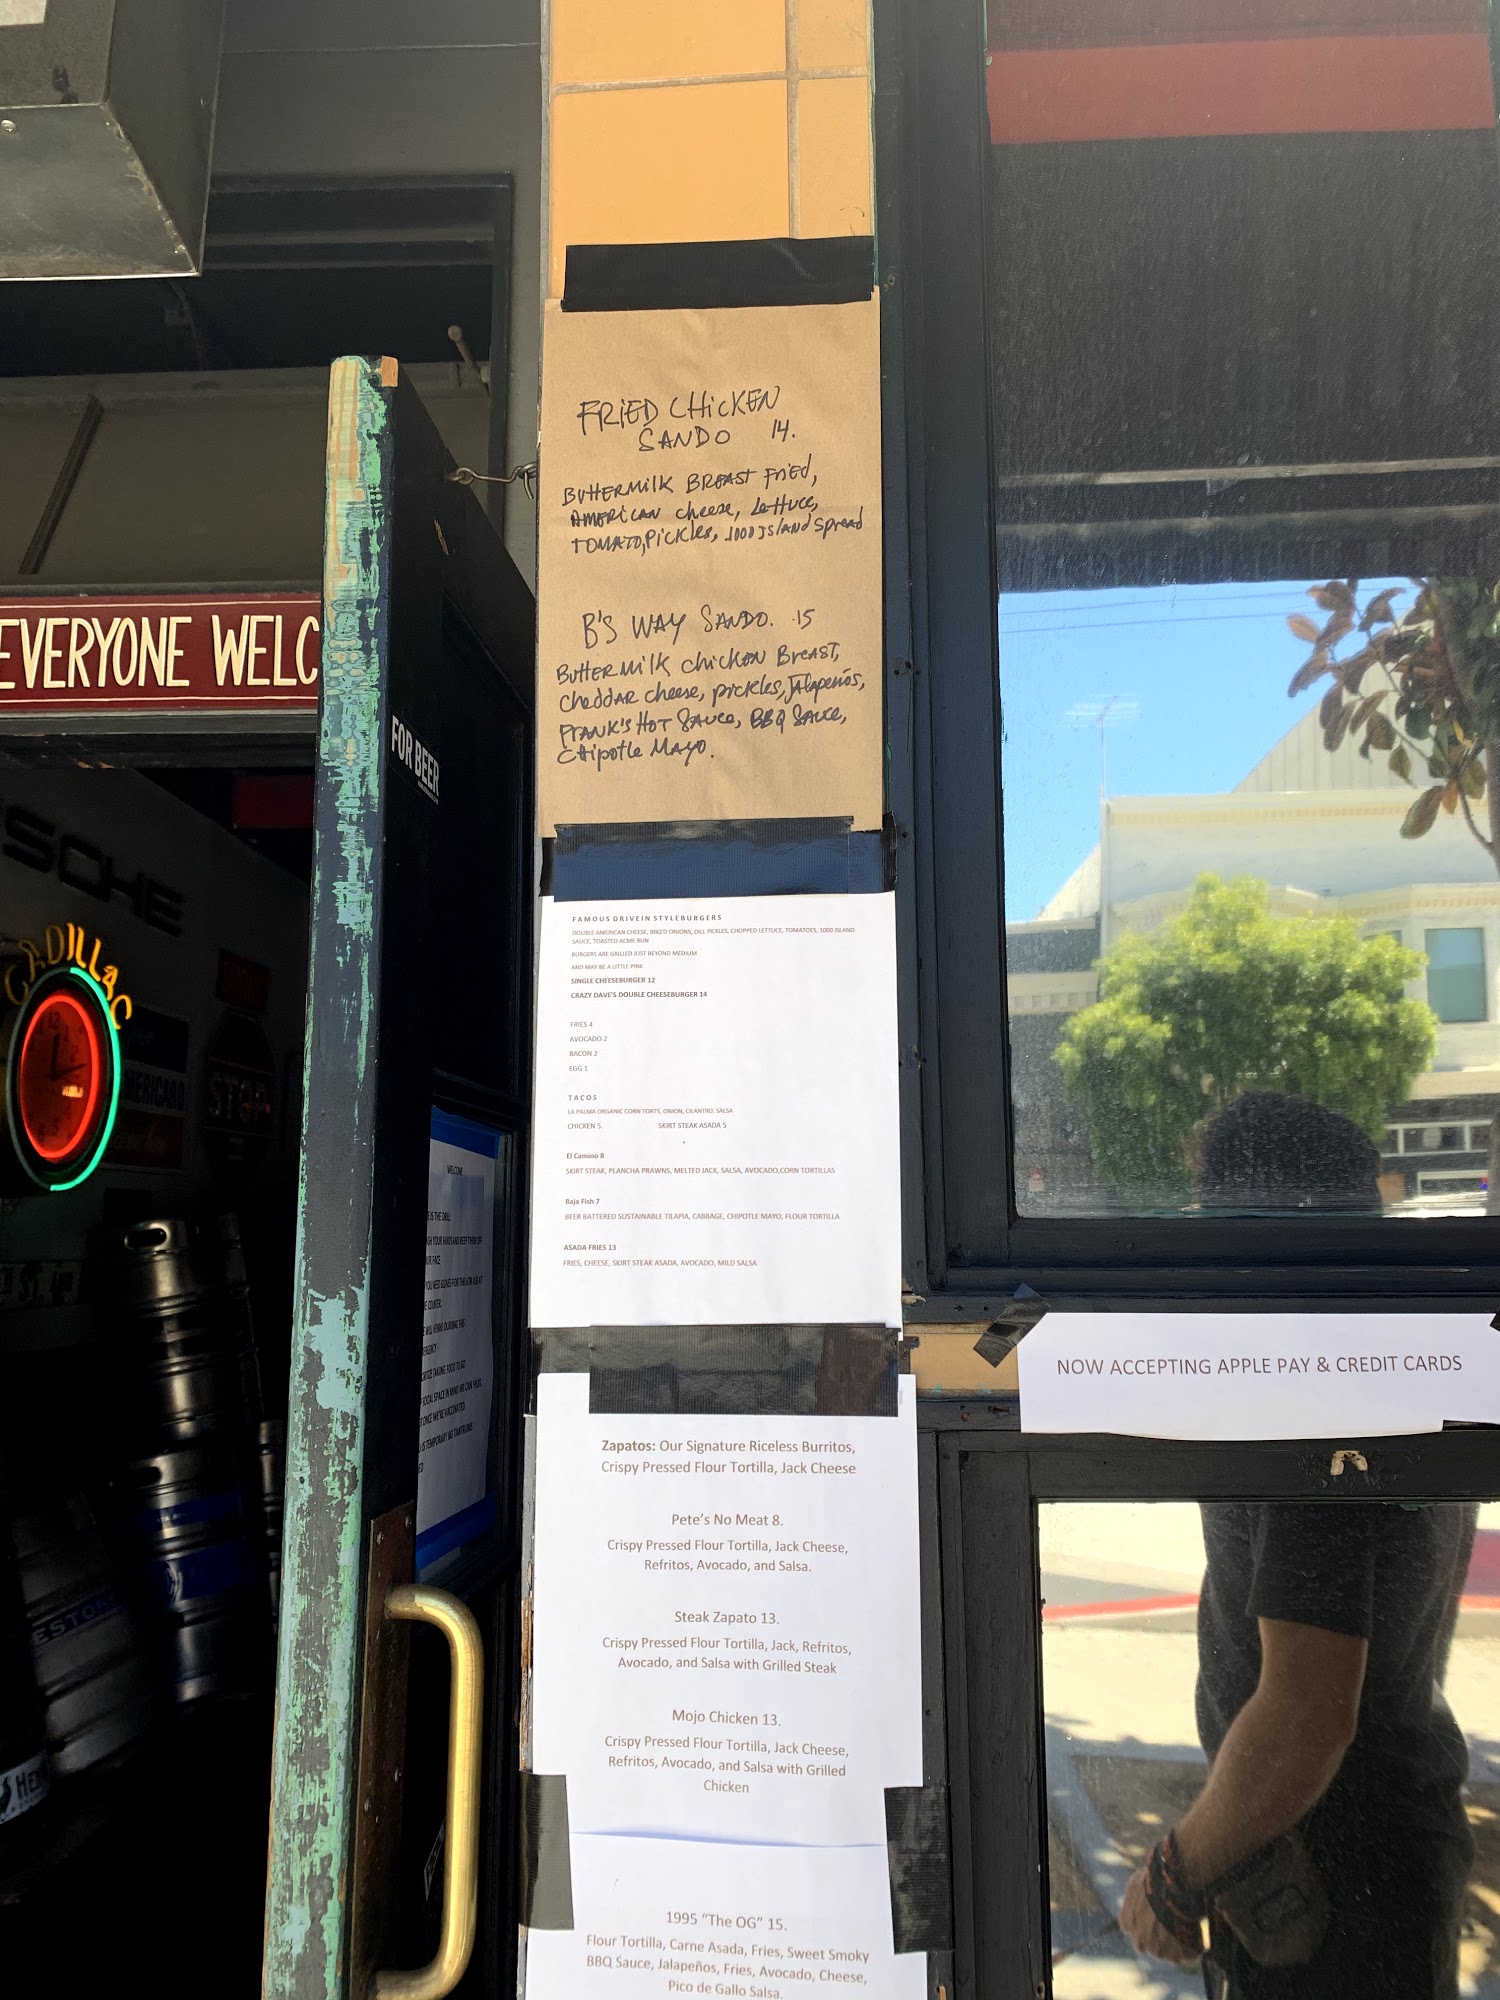 FRIED CHICKEN
SANDO 14.
BUTTERMILK BREAST FRIED,
AMERICAN CHEESE, LETTUCE,
TOMATO, PICKLES, 1000 ISLAND SPREAD
B'S WAY SANDO. 15
BUTTERMILK CHICKEN BREAST,
CHEDDAR CHEESE, PICKLES, JALAPEÑOS,
FRANK'S HOT SAUCE, BBQ SAUCE,
CHIPOTLE MAYO.
EVERYONE WELC
FOR BEER
SCHE
CADILLAC
STOP
FAMOUS DRIVEIN STYLEBURGERS
DOUBLE AMERICAN CHEESE, BBQ'D ONIONS, DILL PICKLES, CHOPPED LETTUCE, TOMATOES, 1000 ISLAND
SAUCE, TOASTED ACME BUN
BURGERS ARE GRILLED JUST BEYOND MEDIUM
AND MAY BE A LITTLE PINK
SINGLE CHEESEBURGER 12
CRAZY DAVE'S DOUBLE CHEESEBURGER 14
FRIES 4
AVOCADO 2
BACON 2
EGG 1
TACOS
LA PALMA ORGANIC CORN TORTS, ONION, CILANTRO, SALSA
CHICKEN 5 SKIRT STEAK ASADA 5
El Camino 8
SKIRT STEAK, PLANCHA PRAWNS, MELTED JACK, SALSA, AVOCADO,CORN TORTILLAS
Baja Fish 7
BEER BATTERED SUSTAINABLE TILAPIA, CABBAGE, CHIPOTLE MAYO, FLOUR TORTILLA
ASADA FRIES 13
FRIES, CHEESE, SKIRT STEAK ASADA, AVOCADO, MILD SALSA
WELCOME
NOW ACCEPTING APPLE PAY & CREDIT CARDS
Zapatos: Our Signature Riceless Burritos,
Crispy Pressed Flour Tortilla, Jack Cheese
Pete's No Meat 8.
Crispy Pressed Flour Tortilla, Jack Cheese,
Refritos, Avocado, and Salsa.
Steak Zapato 13.
Crispy Pressed Flour Tortilla, Jack, Refritos,
Avocado, and Salsa with Grilled Steak
Mojo Chicken 13.
Crispy Pressed Flour Tortilla, Jack Cheese,
Refritos, Avocado, and Salsa with Grilled
Chicken
1995 "The OG" 15.
Flour Tortilla, Carne Asada, Fries, Sweet Smoky
BBQ Sauce, Jalapeños, Fries, Avocado, Cheese,
Pico de Gallo Salsa.